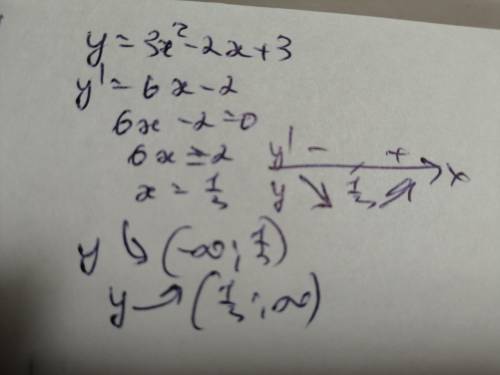 y = 3x² - 2x + 3
y' = 6x - 2
6x - 2 = 0
6x = 2
x = 1/3
y' - + x
y ↘ 1/3 ↗
y ↘ (-∞; 1/3)
y ↗ (1/3; ∞)